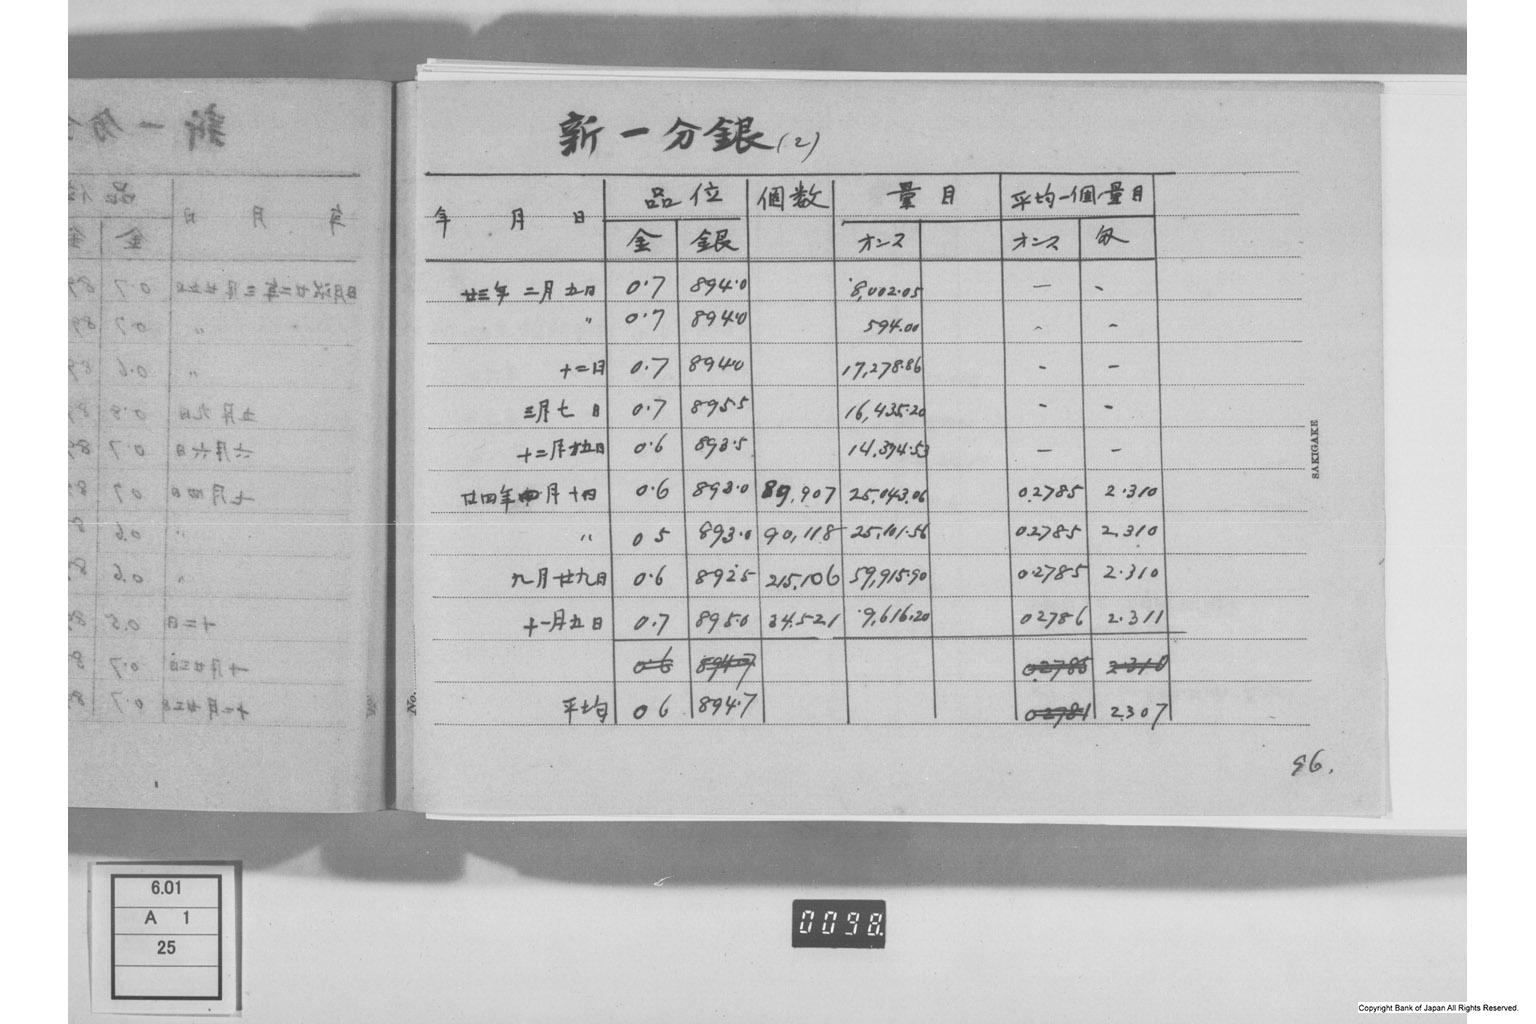 新一分銀(2)
年 月 日 品位 個数 量目 平均一個量目
金 銀 オンス オンス 匁
廿三年 二月 五日 0.7 894.0 8,002.05 — -
〃 0.7 894.0 594.00 - -
十二日 0.7 894.0 17,278.86 - -
三月七日 0.7 895.5 16,435.20 - -
十二月廿五日 0.6 893.5 14,394.53 — -
廿四年四月十四日 0.6 893.0 89,907 25,043.06 0.2785 2.310
〃 0.5 893.0 90,118 25,101.56 0.2785 2.310
九月廿九日 0.6 892.5 215,106 59,915.90 0.2785 2.310
十一月五日 0.7 895.0 34,521 9,616.20 0.2786 2.311
0.6 894.7 0.2785 2.310
平均 0.6 894.7 0.2781 2.307
96.
SAKIGAKE
No.
6.01
A 1
25
0098
Copyright Bank of Japan All Rights Reserved.